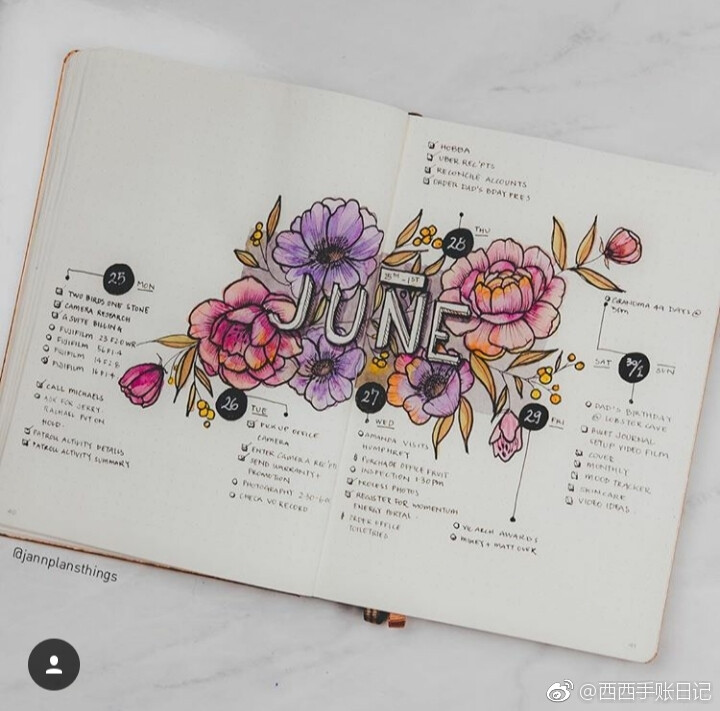 25 MON
TWO BIRDS ONE STONE
CAMERA RESEARCH
G SUITE BILLING
FUJIFILM 23 F2 OWR
FUJIFILM 56 F1.2
FUJIFILM
FUJIFILM 16 F1.4
CALL MICHAELS
ASK FOR JERRY
PUT ON
HOLD.
PATROLL ACTIVITY DETAILS
PATROLL ACTIVITY SUMMARY
25TH - 1ST
JUNE
26 TUE
PICK UP OFFICE
CAMERA
ENTER CAMERA REC'PTS
SEND WARRANTY +
PROMOTION
PHOTOGRAPHY 2:30-6:00
CHECK VO RECORD
27 WED
AMANDA VISITS
HUMPHREY
PURCHASE OFFICE FRUIT
INSPECTION 1:30PM
PROCESS PHOTOS
REGISTER FOR MOMENTUM
ENERGY PORTAL
ORDER OFFICE
TOILETRIES
HOBBA
UBER REC'PTS
RECONCILE ACCOUNTS
ORDER DAD'S BDAY PRES
28 THU
29 FRI
AWARDS
+ MATT OVER
GRANDMA 49 DAYS @
3PM
SAT 30/1 SUN
DAD'S BIRTHDAY
@ LOBSTER CAVE
BULLET JOURNAL
SETUP VIDEO FILM
COVER
MONTHLY
MOOD TRACKER
SKINCARE
VIDEO IDEAS
@jannplansthings
@西西手账日记